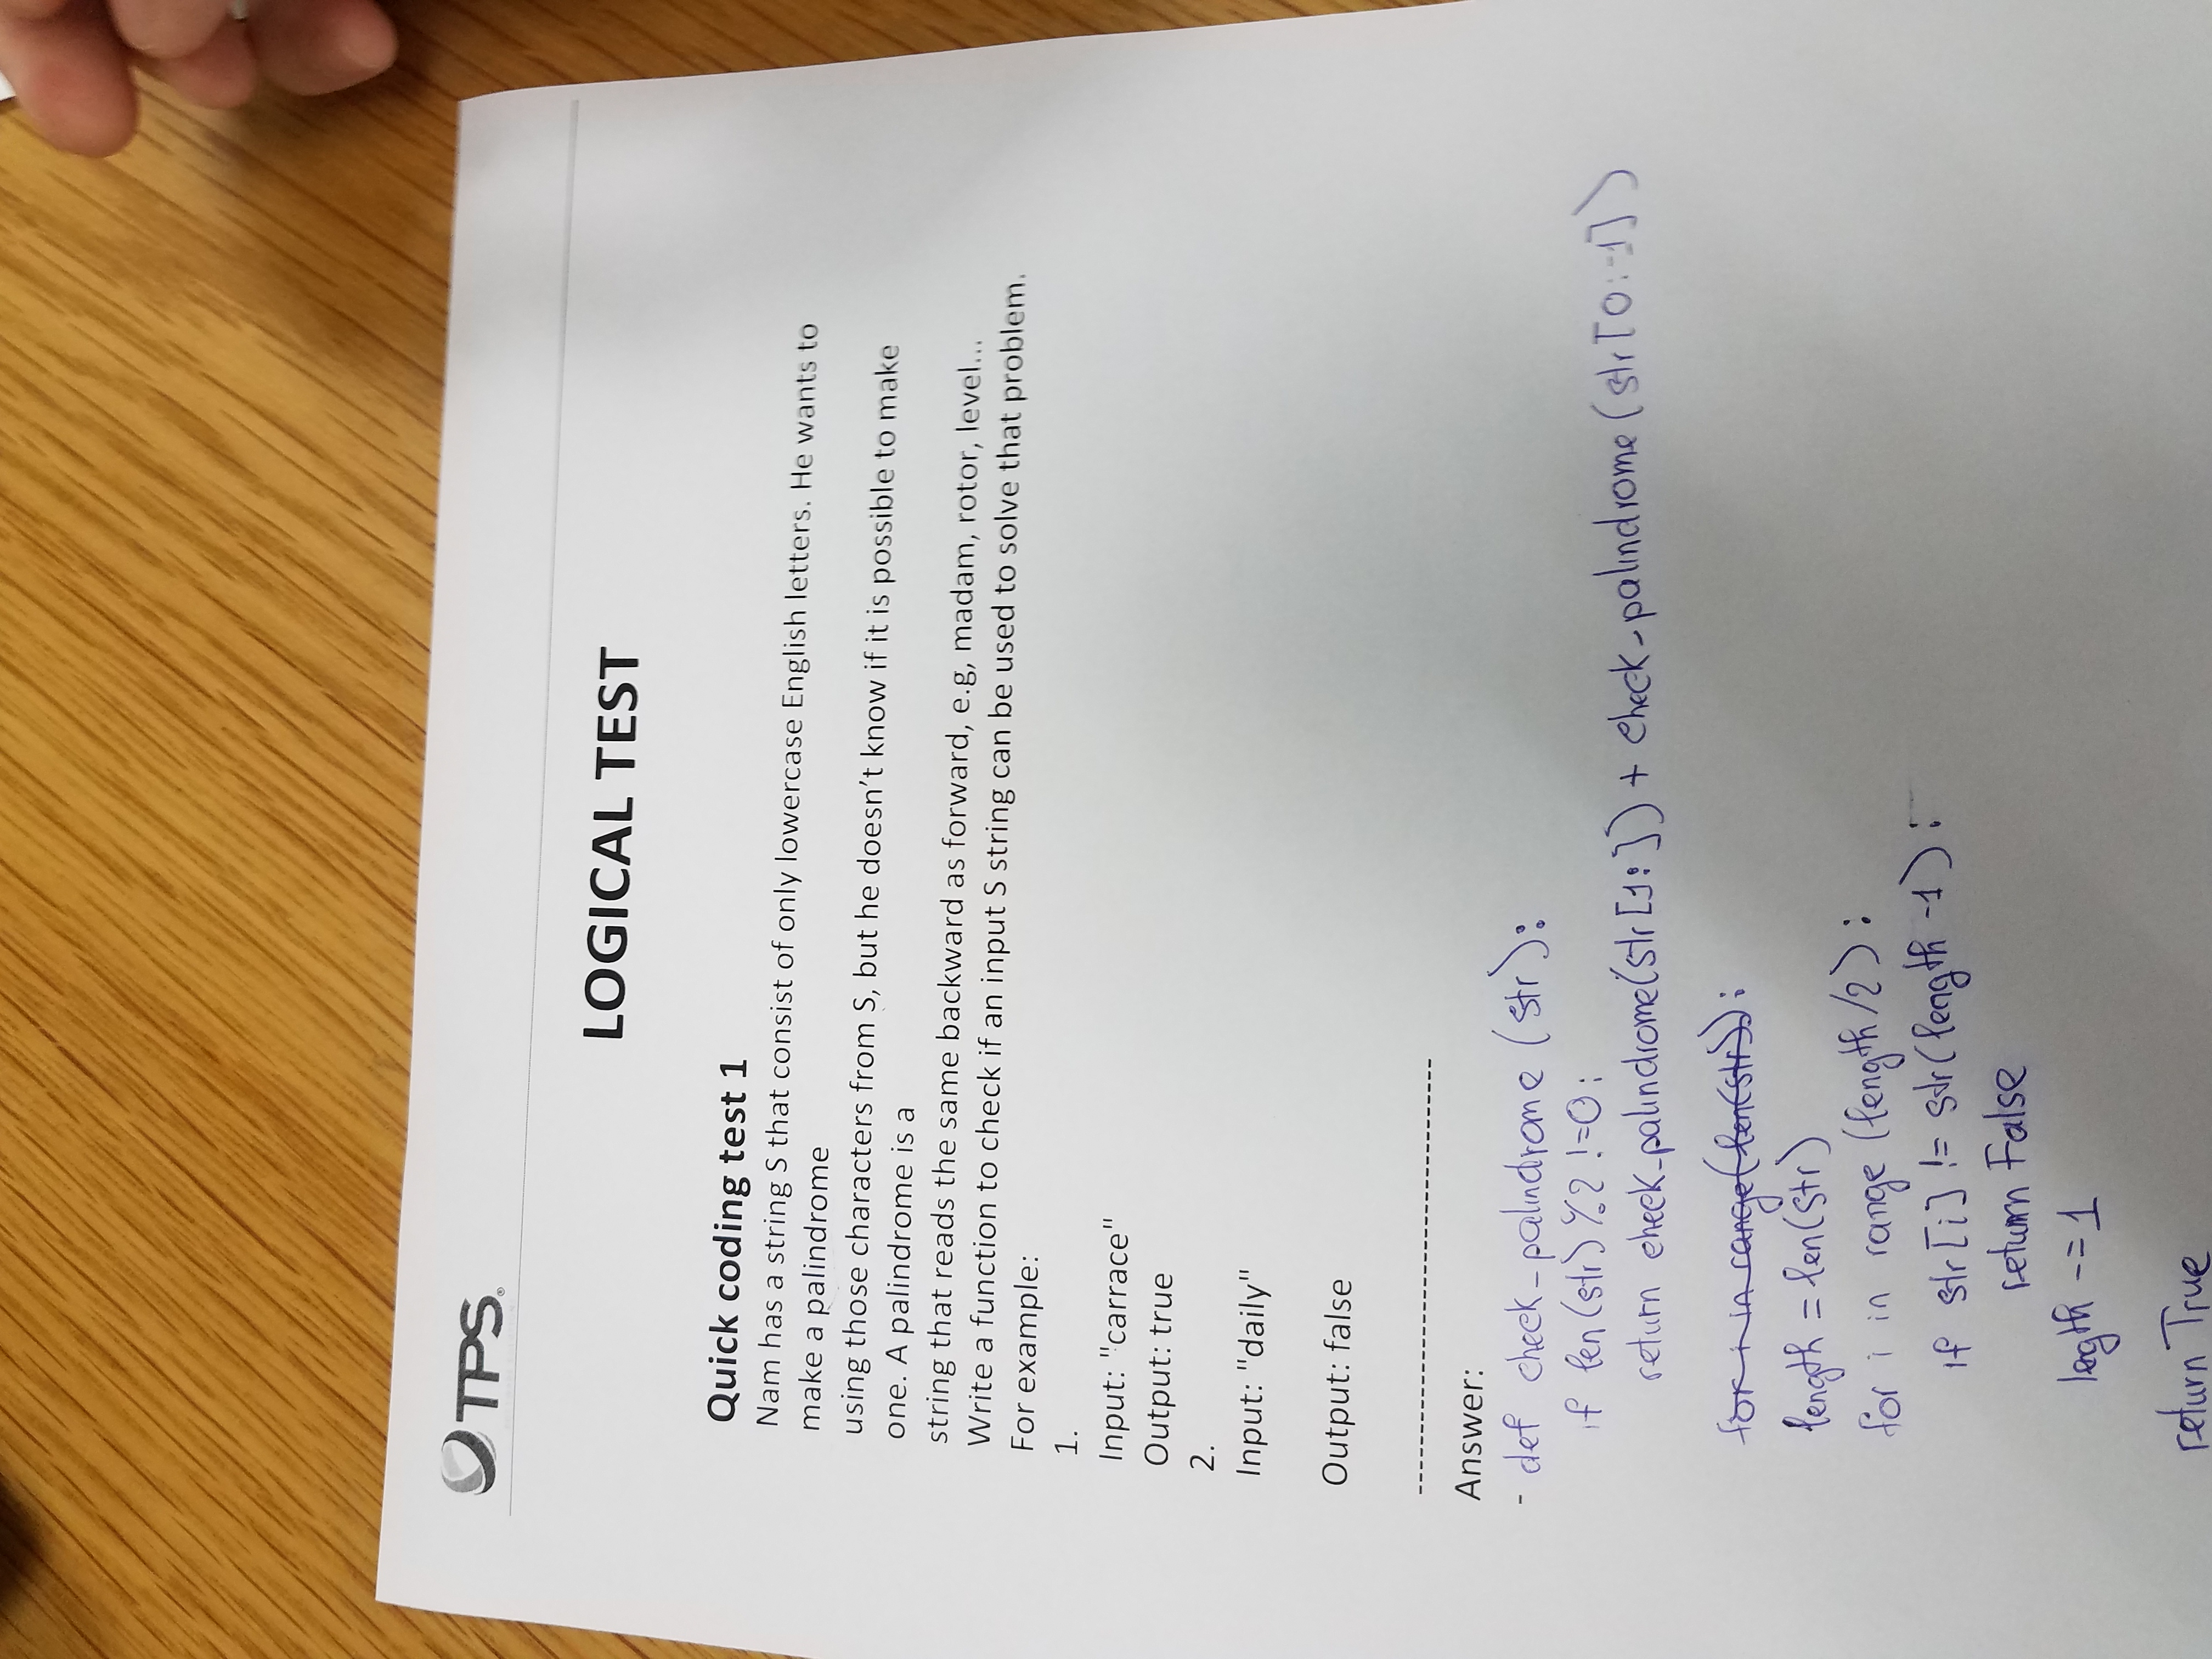 TPS®
LOGICAL TEST
Quick coding test 1
Nam has a string S that consist of only lowercase English letters. He wants to
make a palindrome
using those characters from S, but he doesn't know if it is possible to make
one. A palindrome is a
string that reads the same backward as forward, e.g, madam, rotor, level...
Write a function to check if an input S string can be used to solve that problem.
For example:
1.
Input: "carrace"
Output: true
2.
Input: "daily"
Output: false
-----------------------------------
Answer:
- def check_palindrome (str):
if len(str) %2 !=0:
return check_palindrome(str[1:]) + check_palindrome(str[0:-1])
for i in range(len(str)):
length = len(str)
for i in range (length/2):
if str[i] != str(length -1):
return False
legth -= 1
return True